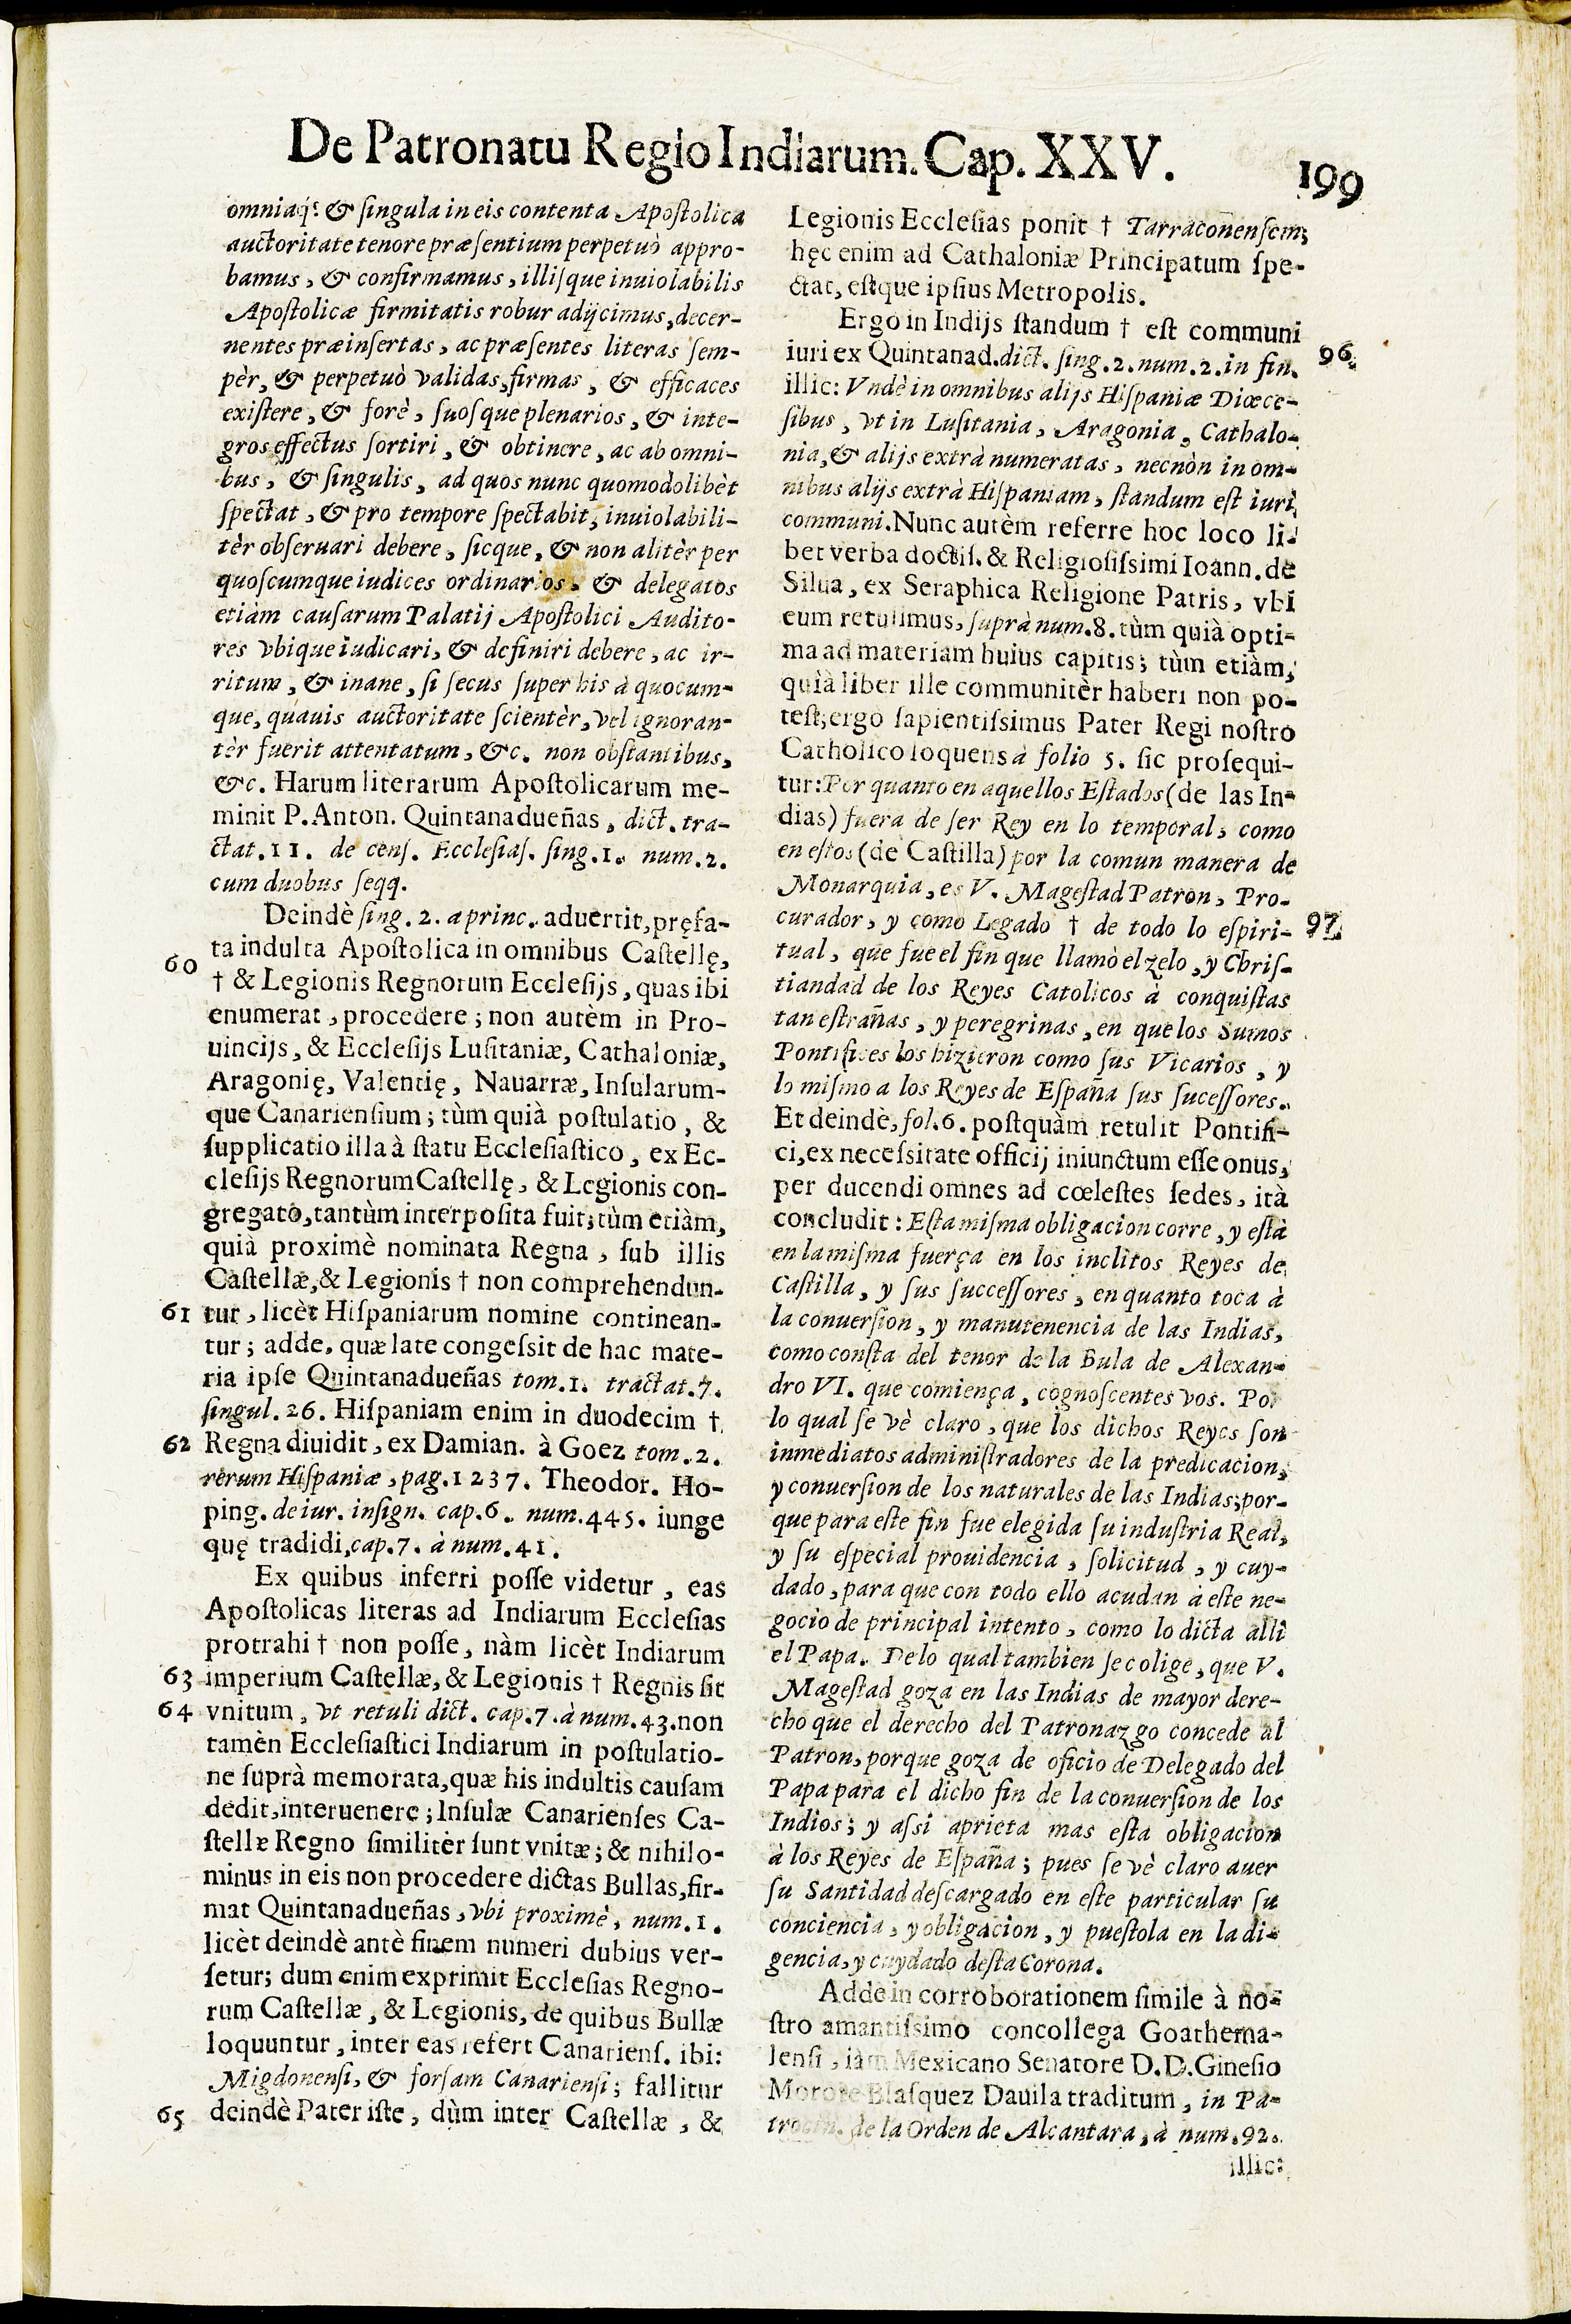 De Patronatu Regio Indiarum. Cap. XXV.
199
omniaq; & ſingula in eis contenta Apoſtolica
auctoritate tenore præſentium perpetuò appro-
bamus, & confirmamus, illiſque inuiolabilis
Apoſtolicæ firmitatis robur adijcimus, decer-
nentes præinſertas, ac præſentes literas ſem-
pèr, & perpetuò validas, firmas, & efficaces
exiſtere, & forè, ſuoſque plenarios, & inte-
gros effectus ſortiri, & obtinere, ac ab omni-
bus, & ſingulis, ad quos nunc quomodolibèt
ſpectat, & pro tempore ſpectabit, inuiolabili-
tèr obſeruari debere, ſicque, & non alitèr per
quoſcumque iudices ordinarios, & delegatos
etiàm cauſarum Palatij Apoſtolici Audito-
res vbique iudicari, & definiri debere, ac ir-
ritum, & inane, ſi ſecus ſuper his à quocum-
que, quauis auctoritate ſcientèr, vel ignoran-
tèr fuerit attentatum, &c. non obſtantibus,
&c. Harum literarum Apoſtolicarum me-
minit P. Anton. Quintanadueñas, dict. tra-
ctat. 11. de cenſ. Eccleſiaſ. ſing. 1. num. 2.
cum duobus ſeqq.
Deindè ſing. 2. a princ. aduertit, pręfa-
ta indulta Apoſtolica in omnibus Castellę,
60
† & Legionis Regnorum Eccleſijs, quas ibi
enumerat, procedere; non autèm in Pro-
uincijs, & Eccleſijs Luſitaniæ, Cathaloniæ,
Aragonię, Valentię, Nauarræ, Inſularum-
que Canarienſium; tùm quià poſtulatio, &
ſupplicatio illa à ſtatu Eccleſiaſtico, ex Ec-
cleſijs Regnorum Caſtellę, & Legionis con-
gregato, tantùm interpoſita fuit; tùm etiàm,
quià proximè nominata Regna, ſub illis
Caſtellæ, & Legionis † non comprehendun-
61 tur, licèt Hiſpaniarum nomine continean-
tur; adde, quæ late congeſsit de hac mate-
ria ipſe Quintanadueñas tom. 1. tractat. 7.
ſingul. 26. Hiſpaniam enim in duodecim †
62 Regna diuidit, ex Damian. à Goez tom. 2.
rerum Hiſpaniæ, pag. 1237. Theodor. Ho-
ping. de iur. inſign. cap. 6. num. 445. iunge
quę tradidi, cap. 7. à num. 41.
Ex quibus inferri poſſe videtur, eas
Apoſtolicas literas ad Indiarum Eccleſias
protrahi † non poſſe, nàm licèt Indiarum
63 imperium Caſtellæ, & Legionis † Regnis ſit
64 vnitum, vt retuli dict. cap. 7. à num. 43. non
tamèn Eccleſiaſtici Indiarum in poſtulatio-
ne ſuprà memorata, quæ his indultis cauſam
dedit, interuenere; Inſulæ Canarienſes Ca-
ſtellæ Regno ſimilitèr ſunt vnitæ; & nihilo-
minus in eis non procedere dictas Bullas, fir-
mat Quintanadueñas, vbi proximè, num. 1.
licèt deindè antè finem numeri dubius ver-
ſetur; dum enim exprimit Eccleſias Regno-
rum Caſtellæ, & Legionis, de quibus Bullæ
loquuntur, inter eas refert Canarienſ. ibi:
Migdonenſi, & forſam Canarienſi; fallitur
65 deindè Pater iſte, dùm inter Caſtellæ, &
Legionis Eccleſias ponit † Tarraconẽnſem;
hęc enim ad Cathaloniæ Principatum ſpe-
ctat, eſtque ipſius Metropolis.
Ergo in Indijs ſtandum † eſt communi
iuri ex Quintanad. dict. ſing. 2. num. 2. in fin. 96
illic: Vndè in omnibus alijs Hiſpaniæ Diœce-
ſibus, vt in Luſitania, Aragonia, Cathalo-
nia, & alijs extrà numeratas, necnòn in om-
nibus alijs extrà Hiſpaniam, ſtandum eſt iuri
communi. Nunc autèm referre hoc loco li-
bet verba doctiſ. & Religioſiſsimi Ioann. de
Silua, ex Seraphica Religione Patris, vbi
eum retulimus, ſuprà num. 8. tùm quià opti-
ma ad materiam huius capitis; tùm etiàm,
quià liber ille communitèr haberi non po-
teſt; ergo ſapientiſsimus Pater Regi noſtro
Catholico loquens à folio 5. ſic proſequi-
tur: Por quanto en aquellos Eſtados (de las In-
dias) fuera de ſer Rey en lo temporal, como
en eſtos (de Caſtilla) por la comun manera de
Monarquia, es V. Mageſtad Patron, Pro-
curador, y como Legado † de todo lo eſpiri- 97
tual, que fue el fin que llamò el zelo, y Chriſ-
tiandad de los Reyes Catolicos à conquiſtas
tan eſtrañas, y peregrinas, en que los Sumos
Pontifices los hizieron como ſus Vicarios, y
lo miſmo a los Reyes de Eſpaña ſus ſuceſſores.
Et deindè, fol. 6. poſtquàm retulit Pontifi-
ci, ex neceſsitate officij iniunctum eſſe onus,
per ducendi omnes ad cœleſtes ſedes, ità
concludit: Eſta miſma obligacion corre, y eſtà
en la miſma fuerça en los inclitos Reyes de
Caſtilla, y ſus ſucceſſores, en quanto toca à
la conuerſion, y manutenencia de las Indias,
como conſta del tenor de la Bula de Alexan-
dro VI. que comiença, cognoſcentes vos. Por
lo qual ſe vè claro, que los dichos Reyes ſon
inmediatos adminiſtradores de la predicacion,
y conuerſion de los naturales de las Indias; por-
que para eſte fin fue elegida ſu induſtria Real,
y ſu eſpecial prouidencia, ſolicitud, y cuy-
dado, para que con todo ello acudan à eſte ne-
gocio de principal intento, como lo dicta alli
el Papa. De lo qual tambien ſe colige, que V.
Mageſtad goza en las Indias de mayor dere-
cho que el derecho del Patronazgo concede al
Patron, porque goza de oficio de Delegado del
Papa para el dicho fin de la conuerſion de los
Indios; y aſsi aprieta mas eſta obligacion
à los Reyes de Eſpaña; pues ſe vè claro auer
ſu Santidad deſcargado en eſte particular ſu
conciencia, y obligacion, y pueſtola en la di-
gencia, y cuydado deſta Corona.
Adde in corroborationem ſimile à no-
ſtro amantiſsimo concollega Goathema-
lenſi, iàm Mexicano Senatore D. D. Gineſio
Morote Blaſquez Dauila traditum, in Pa-
trocin. de la Orden de Alcantara, à num. 92.
illic: